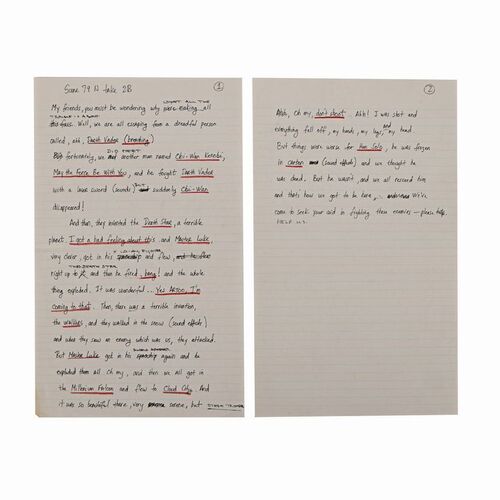 Scene 79 N take 2B
1
My friends, you must be wondering why
Well, we are all escaping from a dreadful person
called, ahh, Darth Vader (breathing)
fortunately, we another man named Obi-Wan Kenobi,
May the Force Be With You, and he fought Darth Vader
with a laser sword (sounds) BUT suddenly Obi-Wan
disappeared!
And then, they invented the Death Star, a terrible
planet. I got a bad feeling about this and Master Luke,
very clever, got in his and flew,
right up to and then he fired, bang! and the whole
thing exploded. It was wonderful... Yes Artoo, I'm
coming to that. Then, there was a terrible invention,
the walkers, and they walked in the snow (sound effects)
and when they saw an enemy which was us, they attacked.
But Master Luke got in his again and he
exploded them all. Oh my, and then we all got in
the Millenium Falcon and flew to Cloud City. And
it was so beautiful there, very serene, but
2
Ahh, Oh my, don't shoot. Ahh! I was shot and
everything fell off, my hands, my legs, and my head.
But things were worse for Han Solo, he was frozen
in carbon (sound effects) and we thought he
was dead. But he wasn't, and we all rescued him
and that's how we got to be here, We've
come to seek your aid in fighting these enemies - please help.
HELP US.